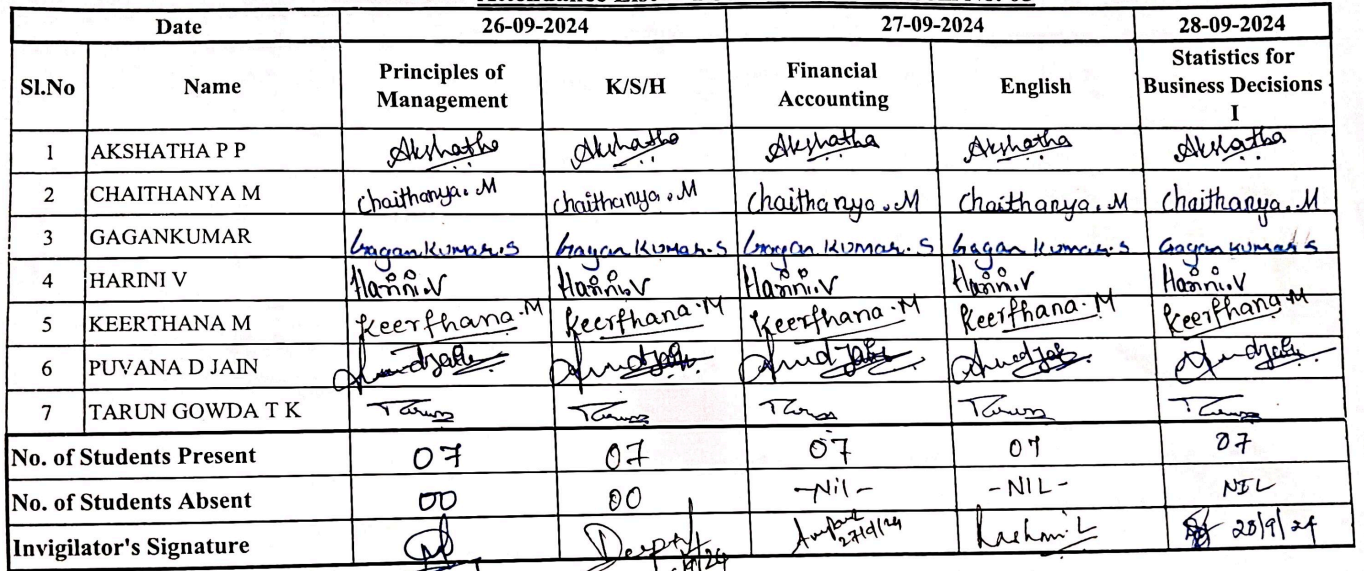 Date 26-09-2024 27-09-2024 28-09-2024
Sl.No Name Principles of Management K/S/H Financial Accounting English Statistics for Business Decisions - I
1 AKSHATHA P P Akshatha Akshatha Akshatha Akshatha Akshatha
2 CHAITHANYA M Chaithanya.M Chaithanya.M Chaithanya.M Chaithanya.M Chaithanya.M
3 GAGANKUMAR Gagan Kumar.S Gagan Kumar.S Gagan Kumar.S Gagan Kumar.S Gagan Kumar S
4 HARINI V Harini.V Harini.V Harini.V Harini.V Harini.V
5 KEERTHANA M Keerthana.M Keerthana M Keerthana.M Keerthana.M Keerthana M
6 PUVANA D JAIN
7 TARUN GOWDA T K Tarun Tarun Tarun Tarun Tarun
No. of Students Present 07 07 07 07 07
No. of Students Absent 00 00 -Nil- -NIL- NIL
Invigilator's Signature 27/9/24 Rashmi.L 28/9/24